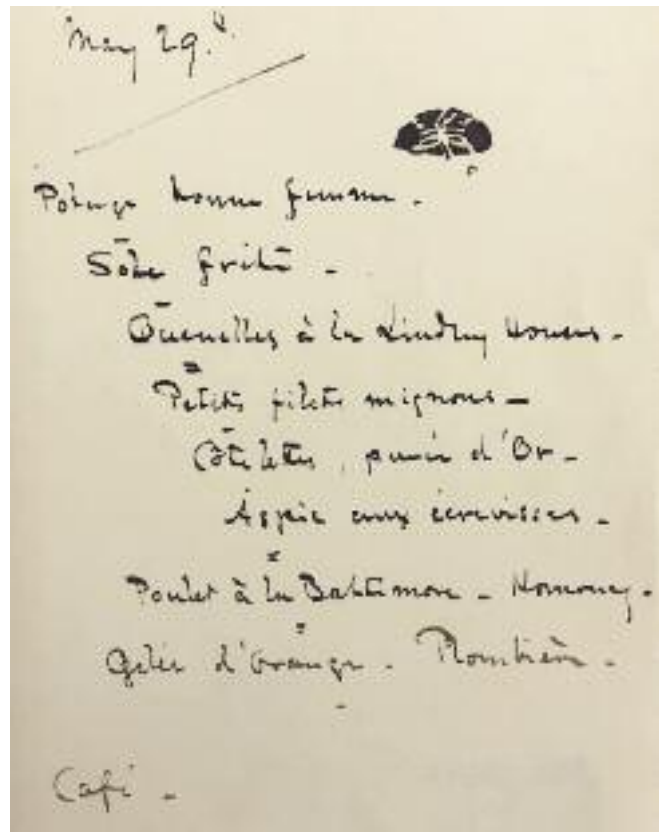 May 29.th
Potage bonne femme -
Sôle frite -
Quenelles à la Lindsey House -
Petits filets mignons -
Côtelettes, purée d'Or -
Aspic aux écrevisses -
Poulet à la Baltimore - Homoney -
Gelée d'Orange - Plombière -
Café -